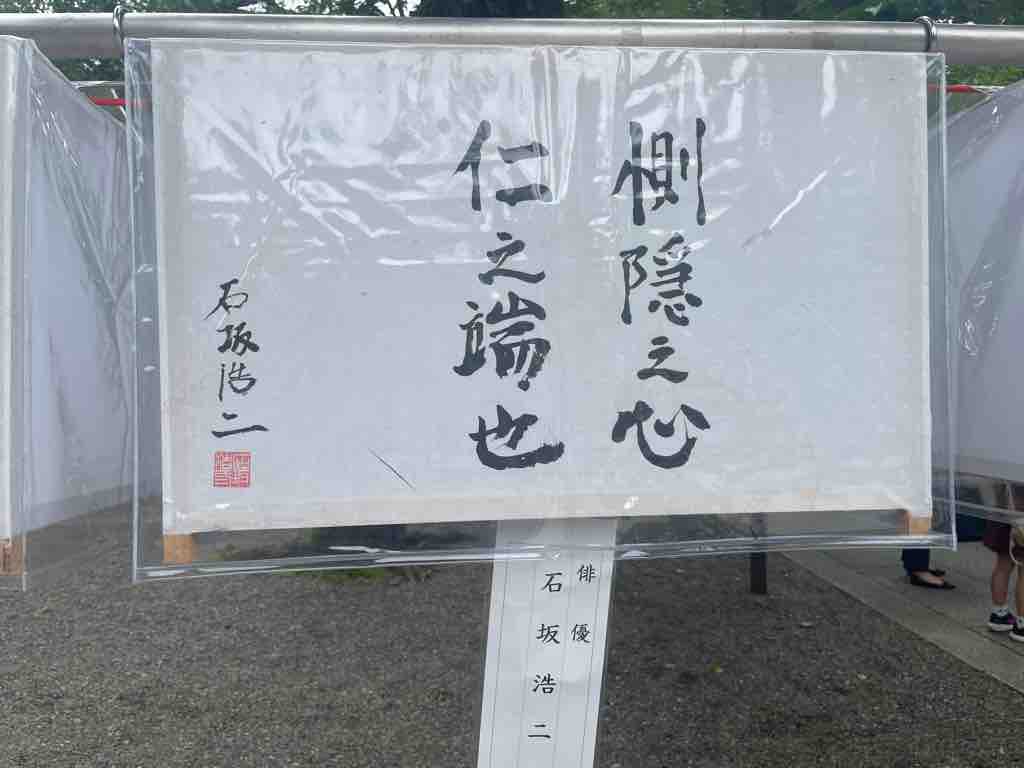 惻隠之心
仁之端也
石坂浩二
俳優
石坂浩二